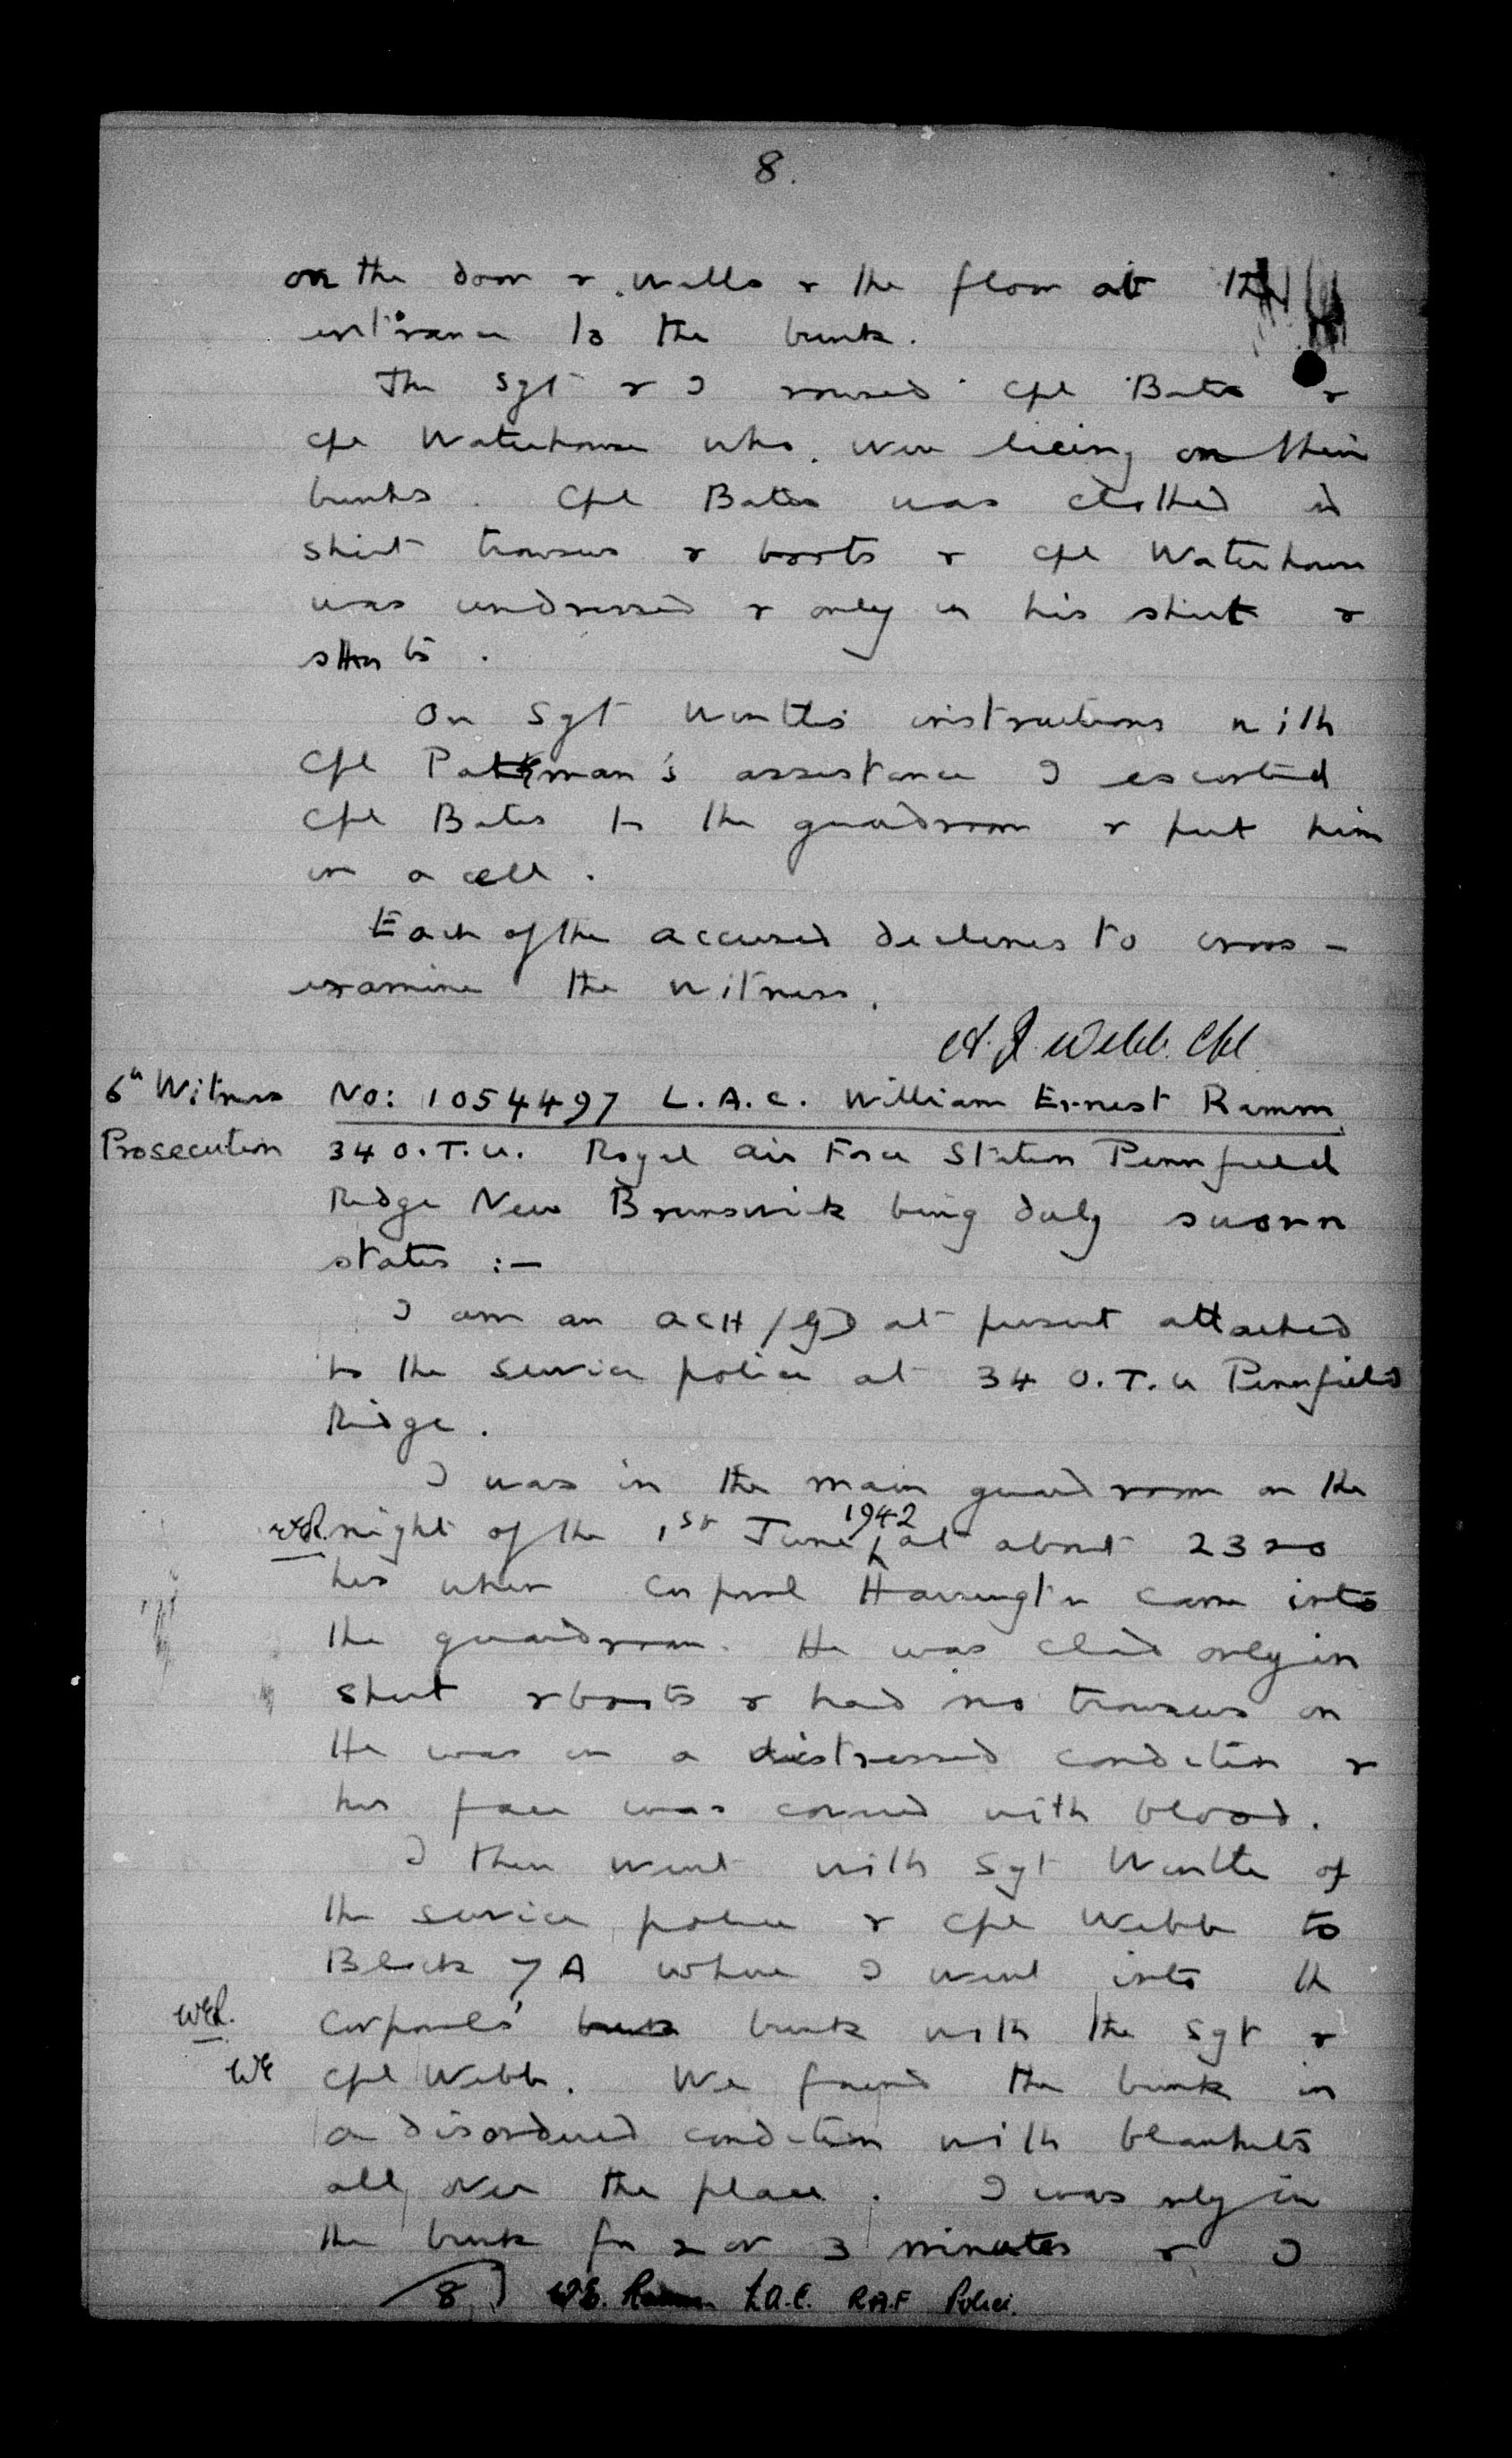 8.
on the door & walls & the floor at the
entrance to the bunk.
The Sgt & I roused Cpl Bates &
Cpl Waterhouse who were lieing on their
bunks. Cpl Bates was clothed in
shirt trousers & boots & Cpl Waterhouse
was undressed & only in his shirt &
shorts.
On Sgt instructions with
Cpl assistance I escorted
Cpl Bates to the guardroom & put him
in a cell.
Each of the accused declines to cross-
examine the witness.
A. J. Webb. Cpl
6th Witness
Prosecution
No: 1054497 L.A.C. William Ernest Ramm
34 O.T.U. Royal Air Force Station Pennfield
Ridge New Brunswick being duly sworn
states :-
I am an ACH/GD at present attached
to the service police at 34 O.T.U Pennfield
Ridge.
I was in the main guardroom on the
WER. night of the 1st June 1942 at about 2320
hrs when Corporal Harrington came into
the guardroom. He was clad only in
shirt & boots & had no trousers on
He was in a distressed condition &
his face was covered with blood.
I then went with Sgt of
the service police & Cpl Webb to
Block 7A where I went into the
WER. Corporals' bunk bunk with the Sgt &
WE Cpl Webb. We found the bunk in
a disordered condition with blankets
all over the place. I was only in
the bunk for 2 or 3 minutes & I
8) W.E. Ramm L.A.C. R.A.F Police.